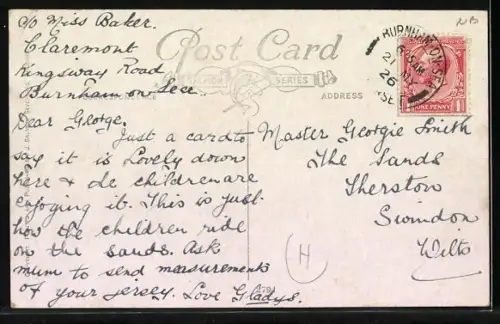 c/o Miss Baker.
Claremont
Kingsway Road
Burnham-on-Sea.
Dear George.
Just a card to
say it is Lovely down
here & de children are
enjoying it. This is just
how the children ride
on the sands. Ask
mum to send measurements
of your jersey. Love Gladys.
Post Card
SALMON SERIES
ADDRESS
BURNHAM-ON-SEA
26
ONE PENNY
Master Georgie Smith
The Sands
Sherston
Swindon
Wilts
H
NB